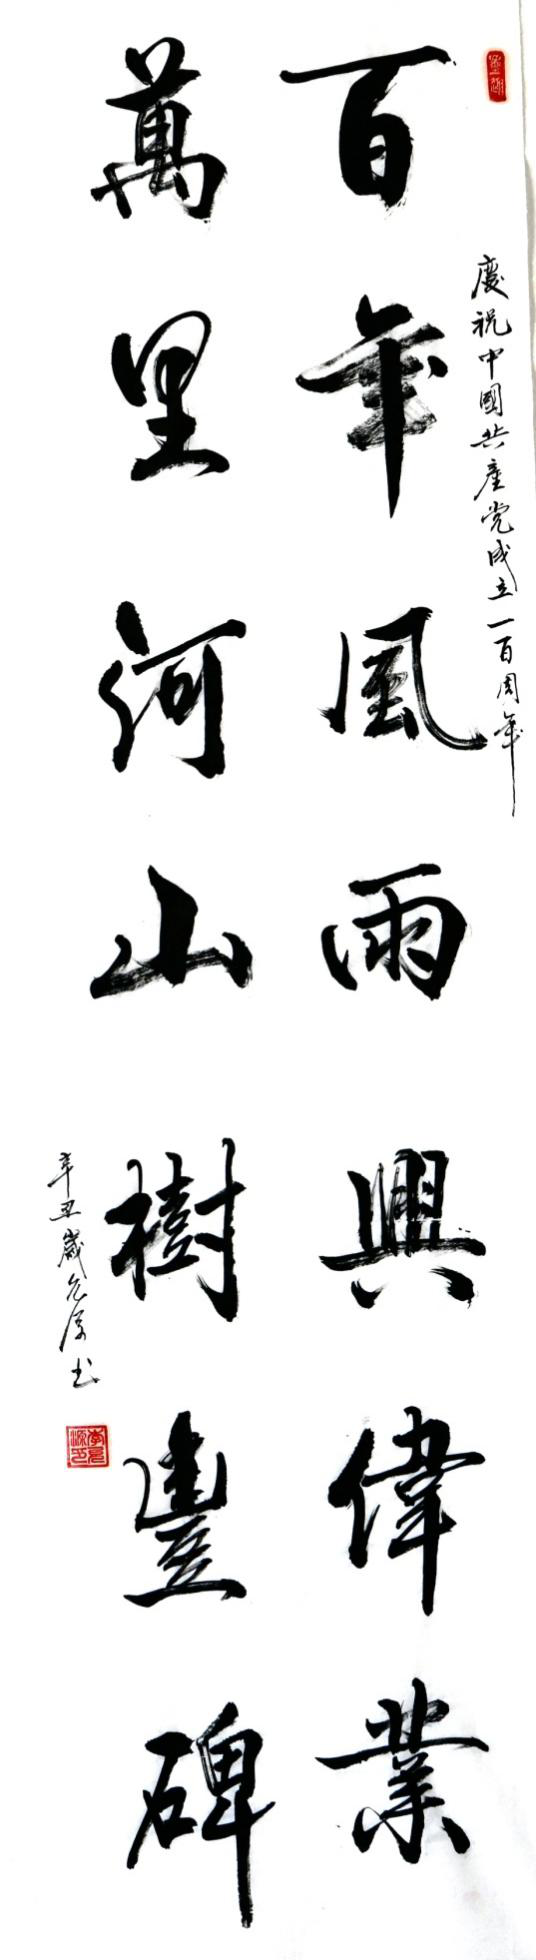 慶祝中國共產党成立一百周年
百年風雨興偉業
萬里河山樹豐碑
辛丑歲允源书